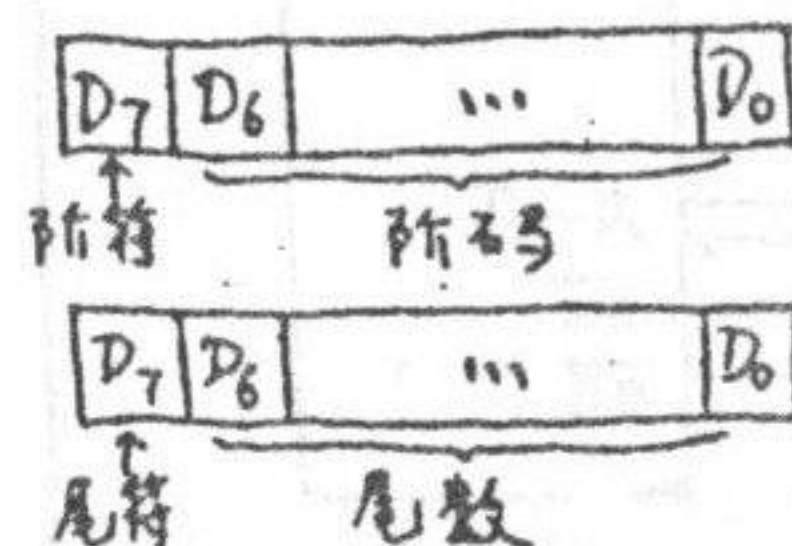 D7 D6 ... D0
阶符 阶码
D7 D6 ... D0
尾符 尾数